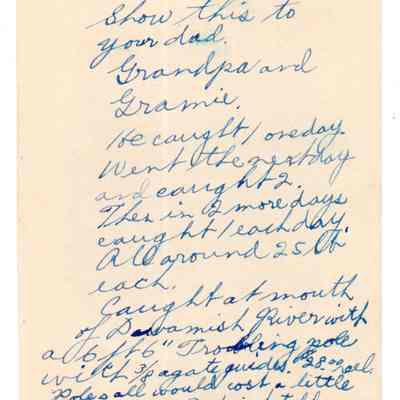 Show this to
your dad.
Grandpa and
Gramie.
He caught 1 one day.
Went the next day
and caught 2.
Then in 2 more days
caught 1 each day.
All around 25 lb
each.
Caught at mouth
of Duwamish River with
a 6 ft 6" Trolling pole
with 3/8 agate guides. $28.00 all.
Poles all would cost a little